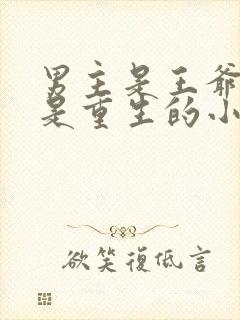 男主是王爷
是重生的小
欲笑復低言